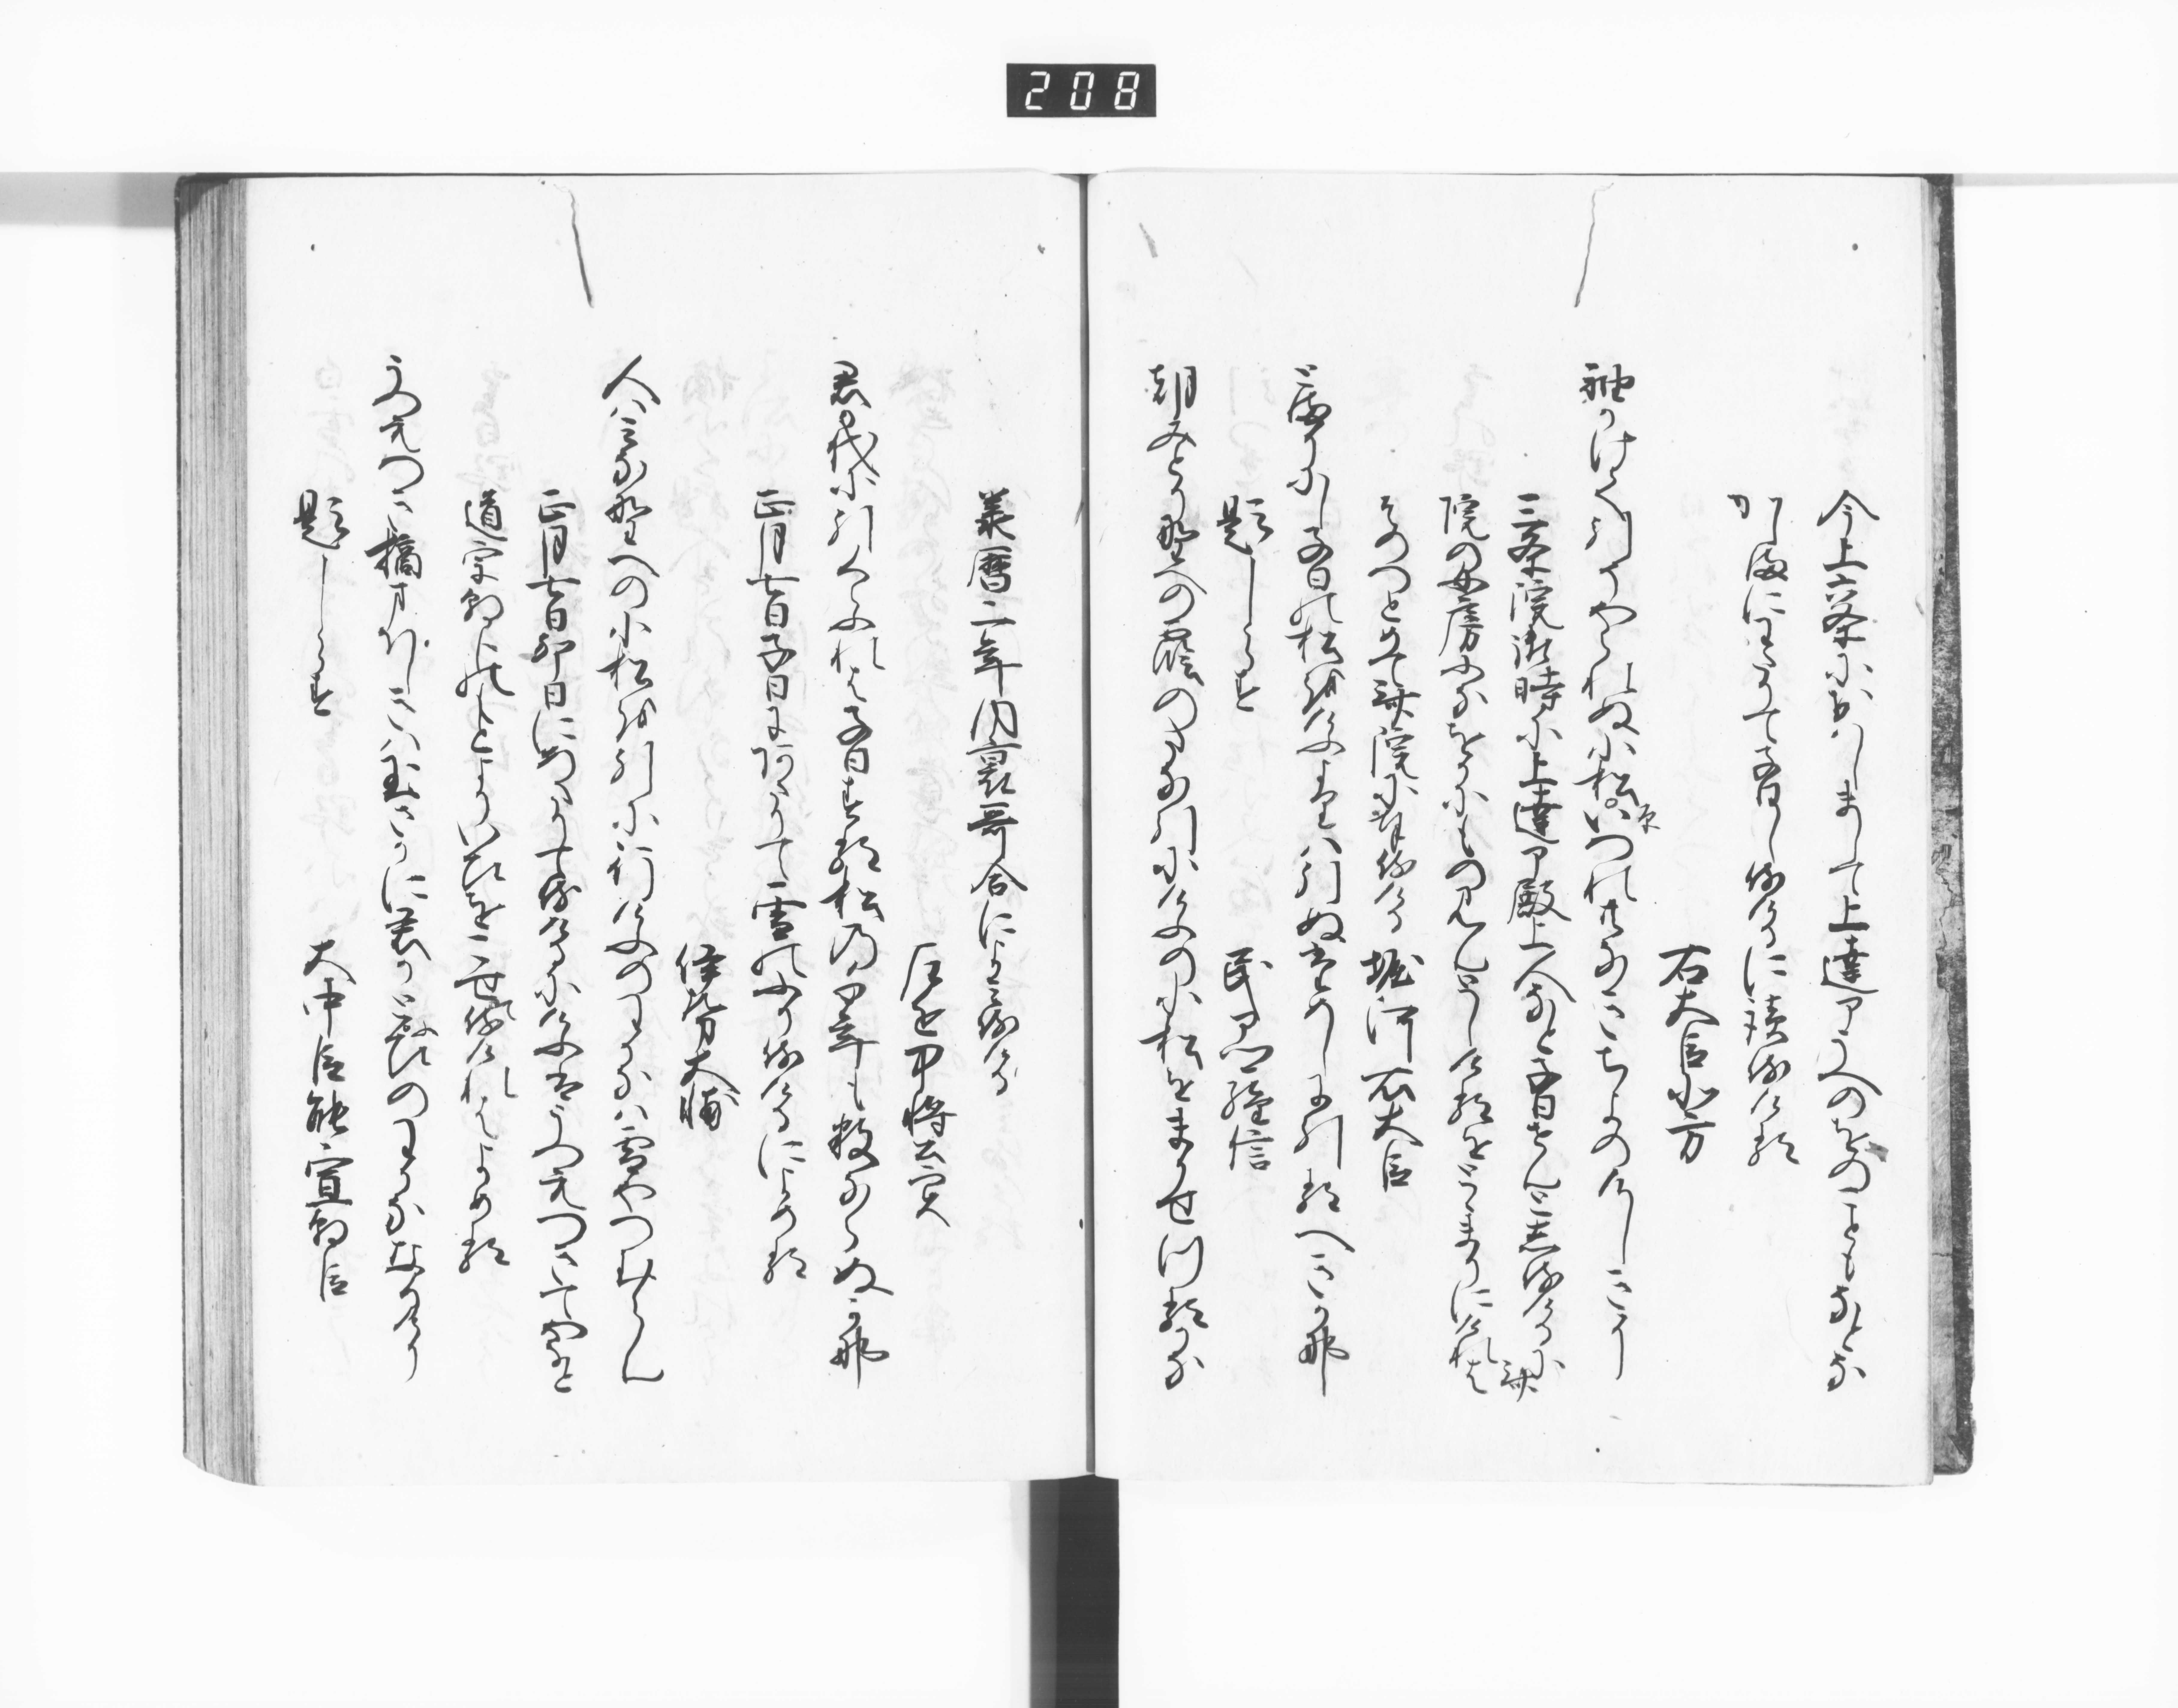 208
今上六条におはしまして上達部うへのをのこともなとな
かしまにわたりて子日し侍けるに読侍ける
右大臣北方
袖かけて引そやられぬ小松原いつれともなきちよのけしきに
三条院御時に上達部殿上人なと子日せんとし侍けるに斎
院の女房ふなをかにもの見んとしけるをとまりにけれは
そのつとめて斎院に奉侍ける 堀河右大臣
とまりにし子日の松をけふよりはひかぬためしに引るへきかな
題しらす 民部卿経信
朝みとり野への霞のたなひくにけふの小松をまかせつるかな
承暦二年内裏哥合によみ侍ける
左近中将公実
君か代に引くらふれは子日する松の千年も数ならぬかな
正月七日子日にあたりて雪のふり侍けるによめる
伊勢大輔
人はみな野への小松を引に行けふのわかなは雪やつむらん
正月七日卯日にあたりて侍けるにけふは卯つえつきてやなと
道宗朝臣のもとよりいひをこせて侍けれはよめる
うつえつきつままほしきはたまさかに君かとふひのわかななりけり
題しらす 大中臣能宣朝臣